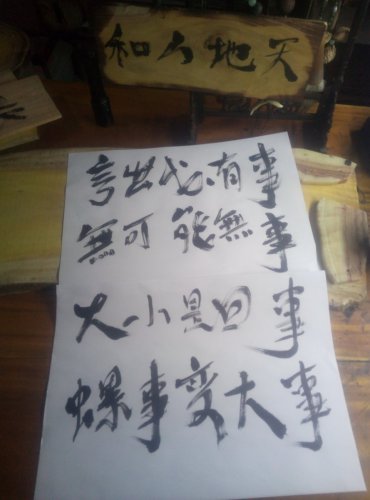 天地人和
出必有事
無可能無事
大小是回事
螺事変大事